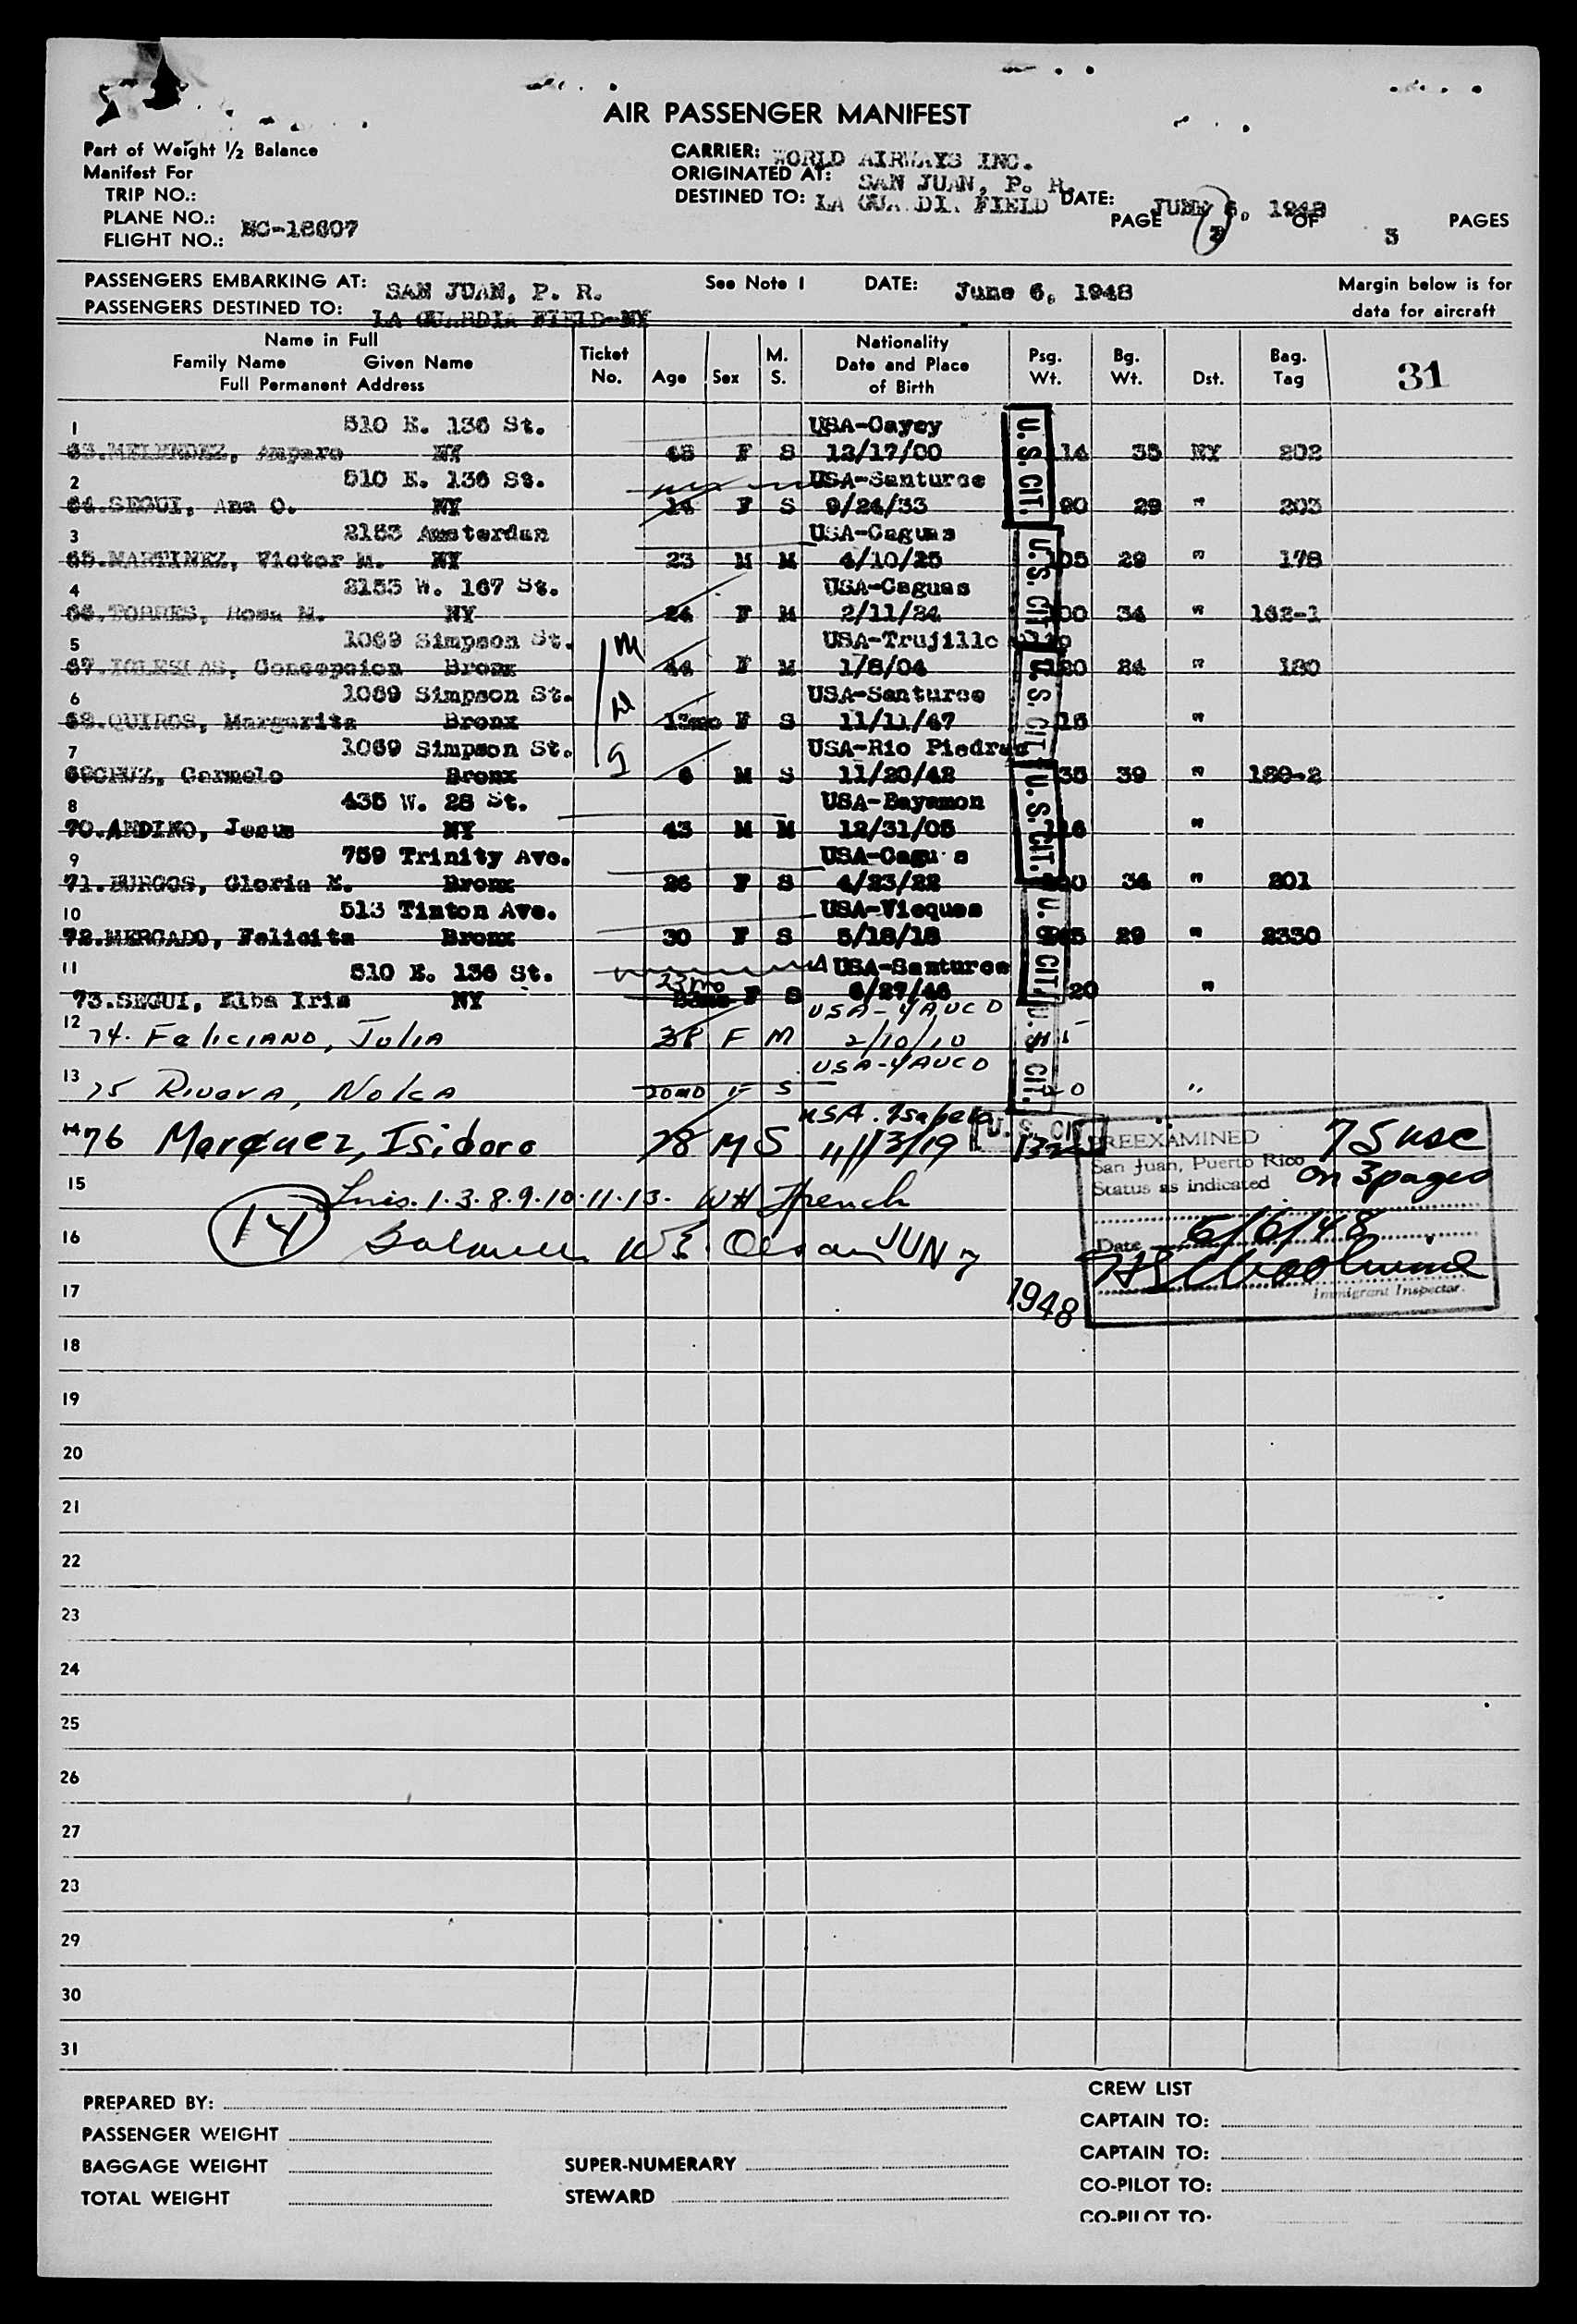 AIR PASSENGER MANIFEST
Part of Weight 1/2 Balance
Manifest For
TRIP NO.:
PLANE NO.:
FLIGHT NO.: NC-18607
CARRIER: WORLD AIRWAYS INC.
ORIGINATED AT: SAN JUAN, P. R.
DESTINED TO: LA GUARDIA FIELD DATE: JUNE 6, 1948
PAGE 3 OF 3 PAGES
PASSENGERS EMBARKING AT: SAN JUAN, P. R. See Note 1 DATE: June 6, 1948
PASSENGERS DESTINED TO: LA GUARDIA FIELD-NY
Margin below is for
data for aircraft
Name in Full
Family Name Given Name
Full Permanent Address
Ticket No. Age Sex M. S. Nationality Date and Place of Birth Psg. Wt. Bg. Wt. Dst. Bag. Tag 31
1 510 E. 136 St. USA-Cayey
63.MELENDEZ, Amparo NY 48 F S 12/17/00 114 35 NY 202
2 510 E. 136 St. USA-Santurce
64.SEGUI, Ana O. NY 14 F S 9/24/33 90 29 " 203
3 2153 Amsterdam USA-Caguas
65.MARTINEZ, Victor M. NY 23 M M 4/10/25 105 29 " 178
4 2153 W. 167 St. USA-Caguas
66.TORRES, Rosa M. NY 24 F M 2/11/24 100 34 " 162-1
5 1069 Simpson St. USA-Trujillo
67.IGLESIAS, Concepcion Bronx 44 F M 1/8/04 120 24 " 180
6 1069 Simpson St. USA-Santurce
68.QUIROS, Margarita Bronx 13mo F S 11/11/47 15 "
7 1069 Simpson St. USA-Rio Piedras
69CRUZ, Carmelo Bronx 6 M S 11/20/42 35 39 " 189-2
8 435 W. 28 St. USA-Bayamon
70.ANDINO, Jesus NY 43 M M 12/31/05 116 "
9 759 Trinity Ave. USA-Caguas
71.BURGOS, Gloria E. Bronx 26 F S 4/23/22 34 " 201
10 513 Tinton Ave. USA-Vieques
72.MERCADO, Felicita Bronx 30 F S 5/18/18 29 " 2330
11 510 E. 136 St. USA-Santurce
73.SEGUI, Elba Iris NY 23mo F S 6/27/46 20 "
12 USA-YAUCO
74. Feliciano, Julia 38 F M 2/10/10
13 USA-YAUCO
75 Rivera, Nolca 20mo F S 20 "
14 USA. Isabela
76 Marquez, Isidoro 28 M S 11/13/19 132
U.S. CIT.
U.S. CIT.
U.S. CIT.
U.S. CIT.
U.S. CIT.
U.S. CIT.
U.S. CIT.
PREEXAMINED 75 USC
San Juan, Puerto Rico on 3 pages
Status as indicated
Date 6/6/48
Immigrant Inspector.
15 Lines. 1.3.8.9.10.11.13. WH French
16 14 Balance W E. Olson JUN 7
1948
17
18
19
20
21
22
23
24
25
26
27
23
29
30
31
PREPARED BY:
PASSENGER WEIGHT
BAGGAGE WEIGHT
TOTAL WEIGHT
SUPER-NUMERARY
STEWARD
CREW LIST
CAPTAIN TO:
CAPTAIN TO:
CO-PILOT TO:
CO-PILOT TO: